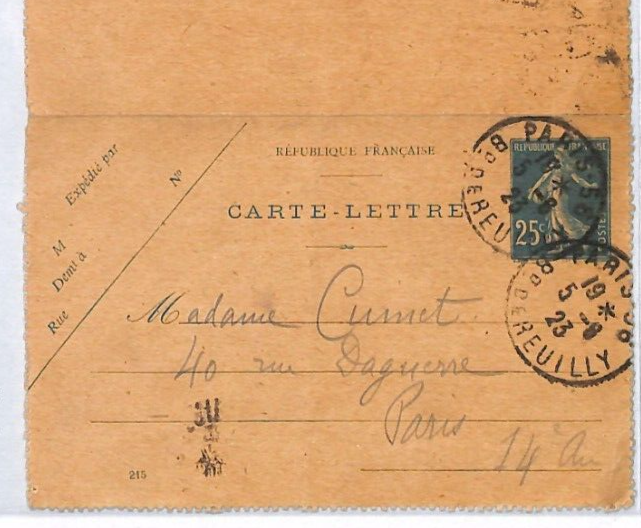 Expédié par
Nº
M
Demt à
Rue
RÉPUBLIQUE FRANÇAISE
CARTE-LETTRE
RÉPUBLIQUE FRANÇAISE
25c
POSTES
PARIS
REUILLY
PARIS
19* 5 -6 23
REUILLY
Madame Cumet
40 rue Daguerre
Paris
14e Arr
215